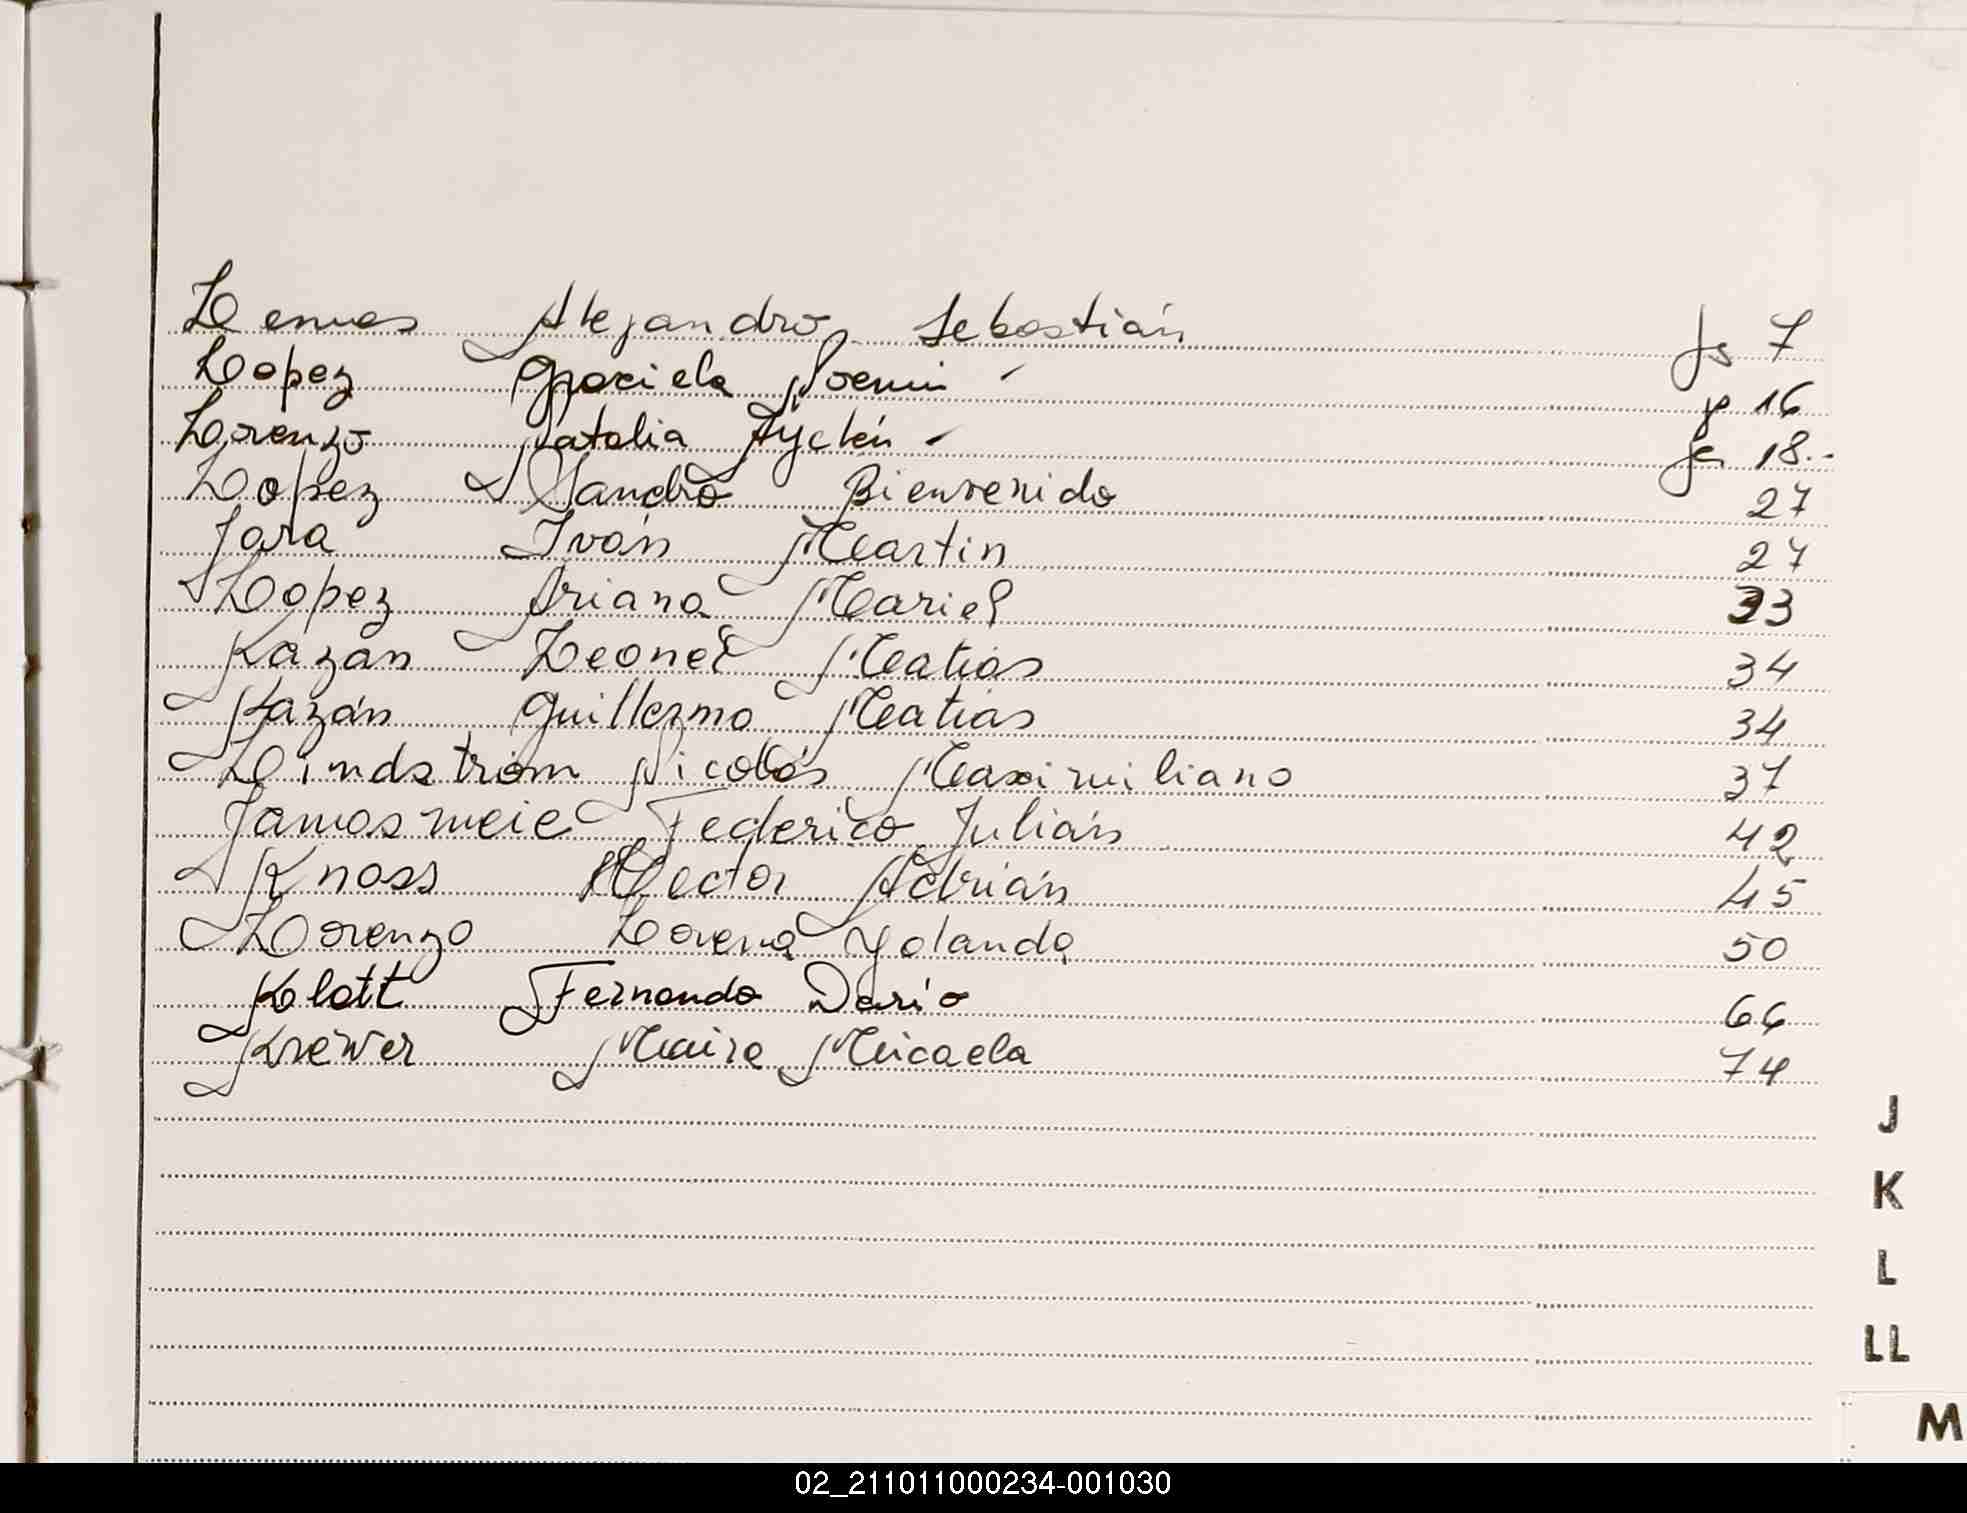 Lemos Alejandro Sebastián fs 7
Lopez Graciela Noemi - f 16
Lorenzo Natalia Aylén - fs 18.-
Lopez Sandro Bienvenido 27
Jara Iván Martin 27
Lopez Ariana Mariel 33
Kazán Leonel Matias 34
Kazán Guillermo Matias 34
Lindstrom Nicolás Maximiliano 37
Jamosmeie Federico Julián 42
Knoss Hector Adrián 45
Lorenzo Lorena Yolanda 50
Klott Fernando Dario 66
Krewer Maira Micaela 74
J
K
L
LL
M
02_211011000234-001030